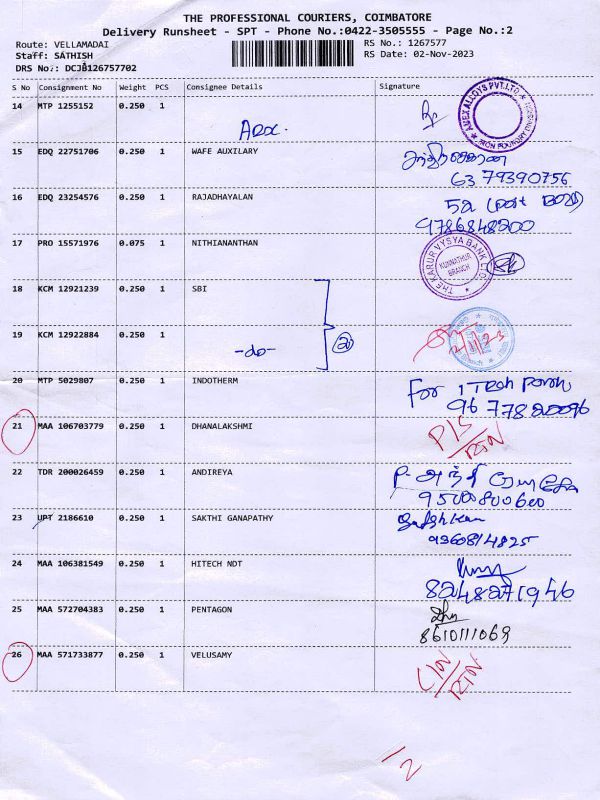 THE PROFESSIONAL COURIERS, COIMBATORE
Delivery Runsheet - SPT - Phone No.:0422-3505555 - Page No.:2
Route: VELLAMADAI RS No.: 1267577
Staff: SATHISH RS Date: 02-Nov-2023
DRS No.: DCJB126757702
S No Consignment No Weight PCS Consignee Details Signature
14 MTP 1255152 0.250 1
APEX ALLOYS PVT.LTD
IRON FOUNDRY DIVISION
15 EDQ 22751706 0.250 1 WAFE AUXILARY
6379390756
16 EDQ 23254576 0.250 1 RAJADHAYALAN
9786848200
17 PRO 15571976 0.075 1 NITHIANANTHAN
THE KARUR VYSYA BANK LTD.
KUNNATHUR
BRANCH
18 KCM 12921239 0.250 1 SBI
19 KCM 12922884 0.250 1
-do- 2
20 MTP 5029807 0.250 1 INDOTHERM For
21 MAA 106703779 0.250 1 DHANALAKSHMI
P/S
RTN
22 TDR 200026459 0.250 1 ANDIREYA
9500800600
23 UPT 2186610 0.250 1 SAKTHI GANAPATHY
9360814825
24 MAA 106381549 0.250 1 HITECH NDT
8248271946
25 MAA 572704383 0.250 1 PENTAGON
8610111069
26 MAA 571733877 0.250 1 VELUSAMY
RTN